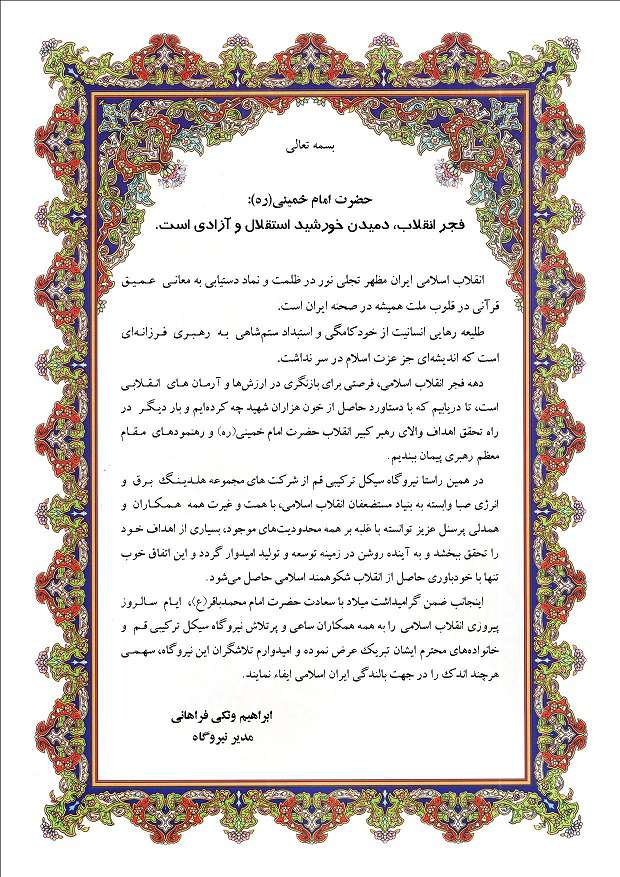 بسمه تعالی
حضرت امام خمینی(ره):
فجر انقلاب، دمیدن خورشید استقلال و آزادی است.
انقلاب اسلامی ایران مظهر تجلی نور در ظلمت و نماد دستیابی به معانی عمیق
قرآنی در قلوب ملت همیشه در صحنه ایران است.
طلیعه رهایی انسانیت از خودکامگی و استبداد ستم‌شاهی به رهبری فرزانه‌ای
است که اندیشه‌ای جز عزت اسلام در سر نداشت.
دهه فجر انقلاب اسلامی، فرصتی برای بازنگری در ارزش‌ها و آرمان های انقلابی
است، تا دریابیم که با دستاورد حاصل از خون هزاران شهید چه کرده‌ایم و بار دیگر در
راه تحقق اهداف والای رهبر کبیر انقلاب حضرت امام خمینی(ره) و رهنمودهای مقام
معظم رهبری پیمان ببندیم.
در همین راستا نیروگاه سیکل ترکیبی قم از شرکت های مجموعه هلدینگ برق و
انرژی صبا وابسته به بنیاد مستضعفان انقلاب اسلامی، با همت و غیرت همه همکاران و
همدلی پرسنل عزیز توانسته با غلبه بر همه محدودیت‌های موجود، بسیاری از اهداف خود
را تحقق ببخشد و به آینده روشن در زمینه توسعه و تولید امیدوار گردد و این اتفاق خوب
تنها با خودباوری حاصل از انقلاب شکوهمند اسلامی حاصل می‌شود.
اینجانب ضمن گرامیداشت میلاد با سعادت حضرت امام محمدباقر(ع)، ایام سالروز
پیروزی انقلاب اسلامی را به همه همکاران ساعی و پرتلاش نیروگاه سیکل ترکیبی قم و
خانواده‌های محترم ایشان تبریک عرض نموده و امیدوارم تلاشگران این نیروگاه، سهمی
هرچند اندک را در جهت بالندگی ایران اسلامی ایفاء نمایند.
ابراهیم ونکی فراهانی
مدیر نیروگاه